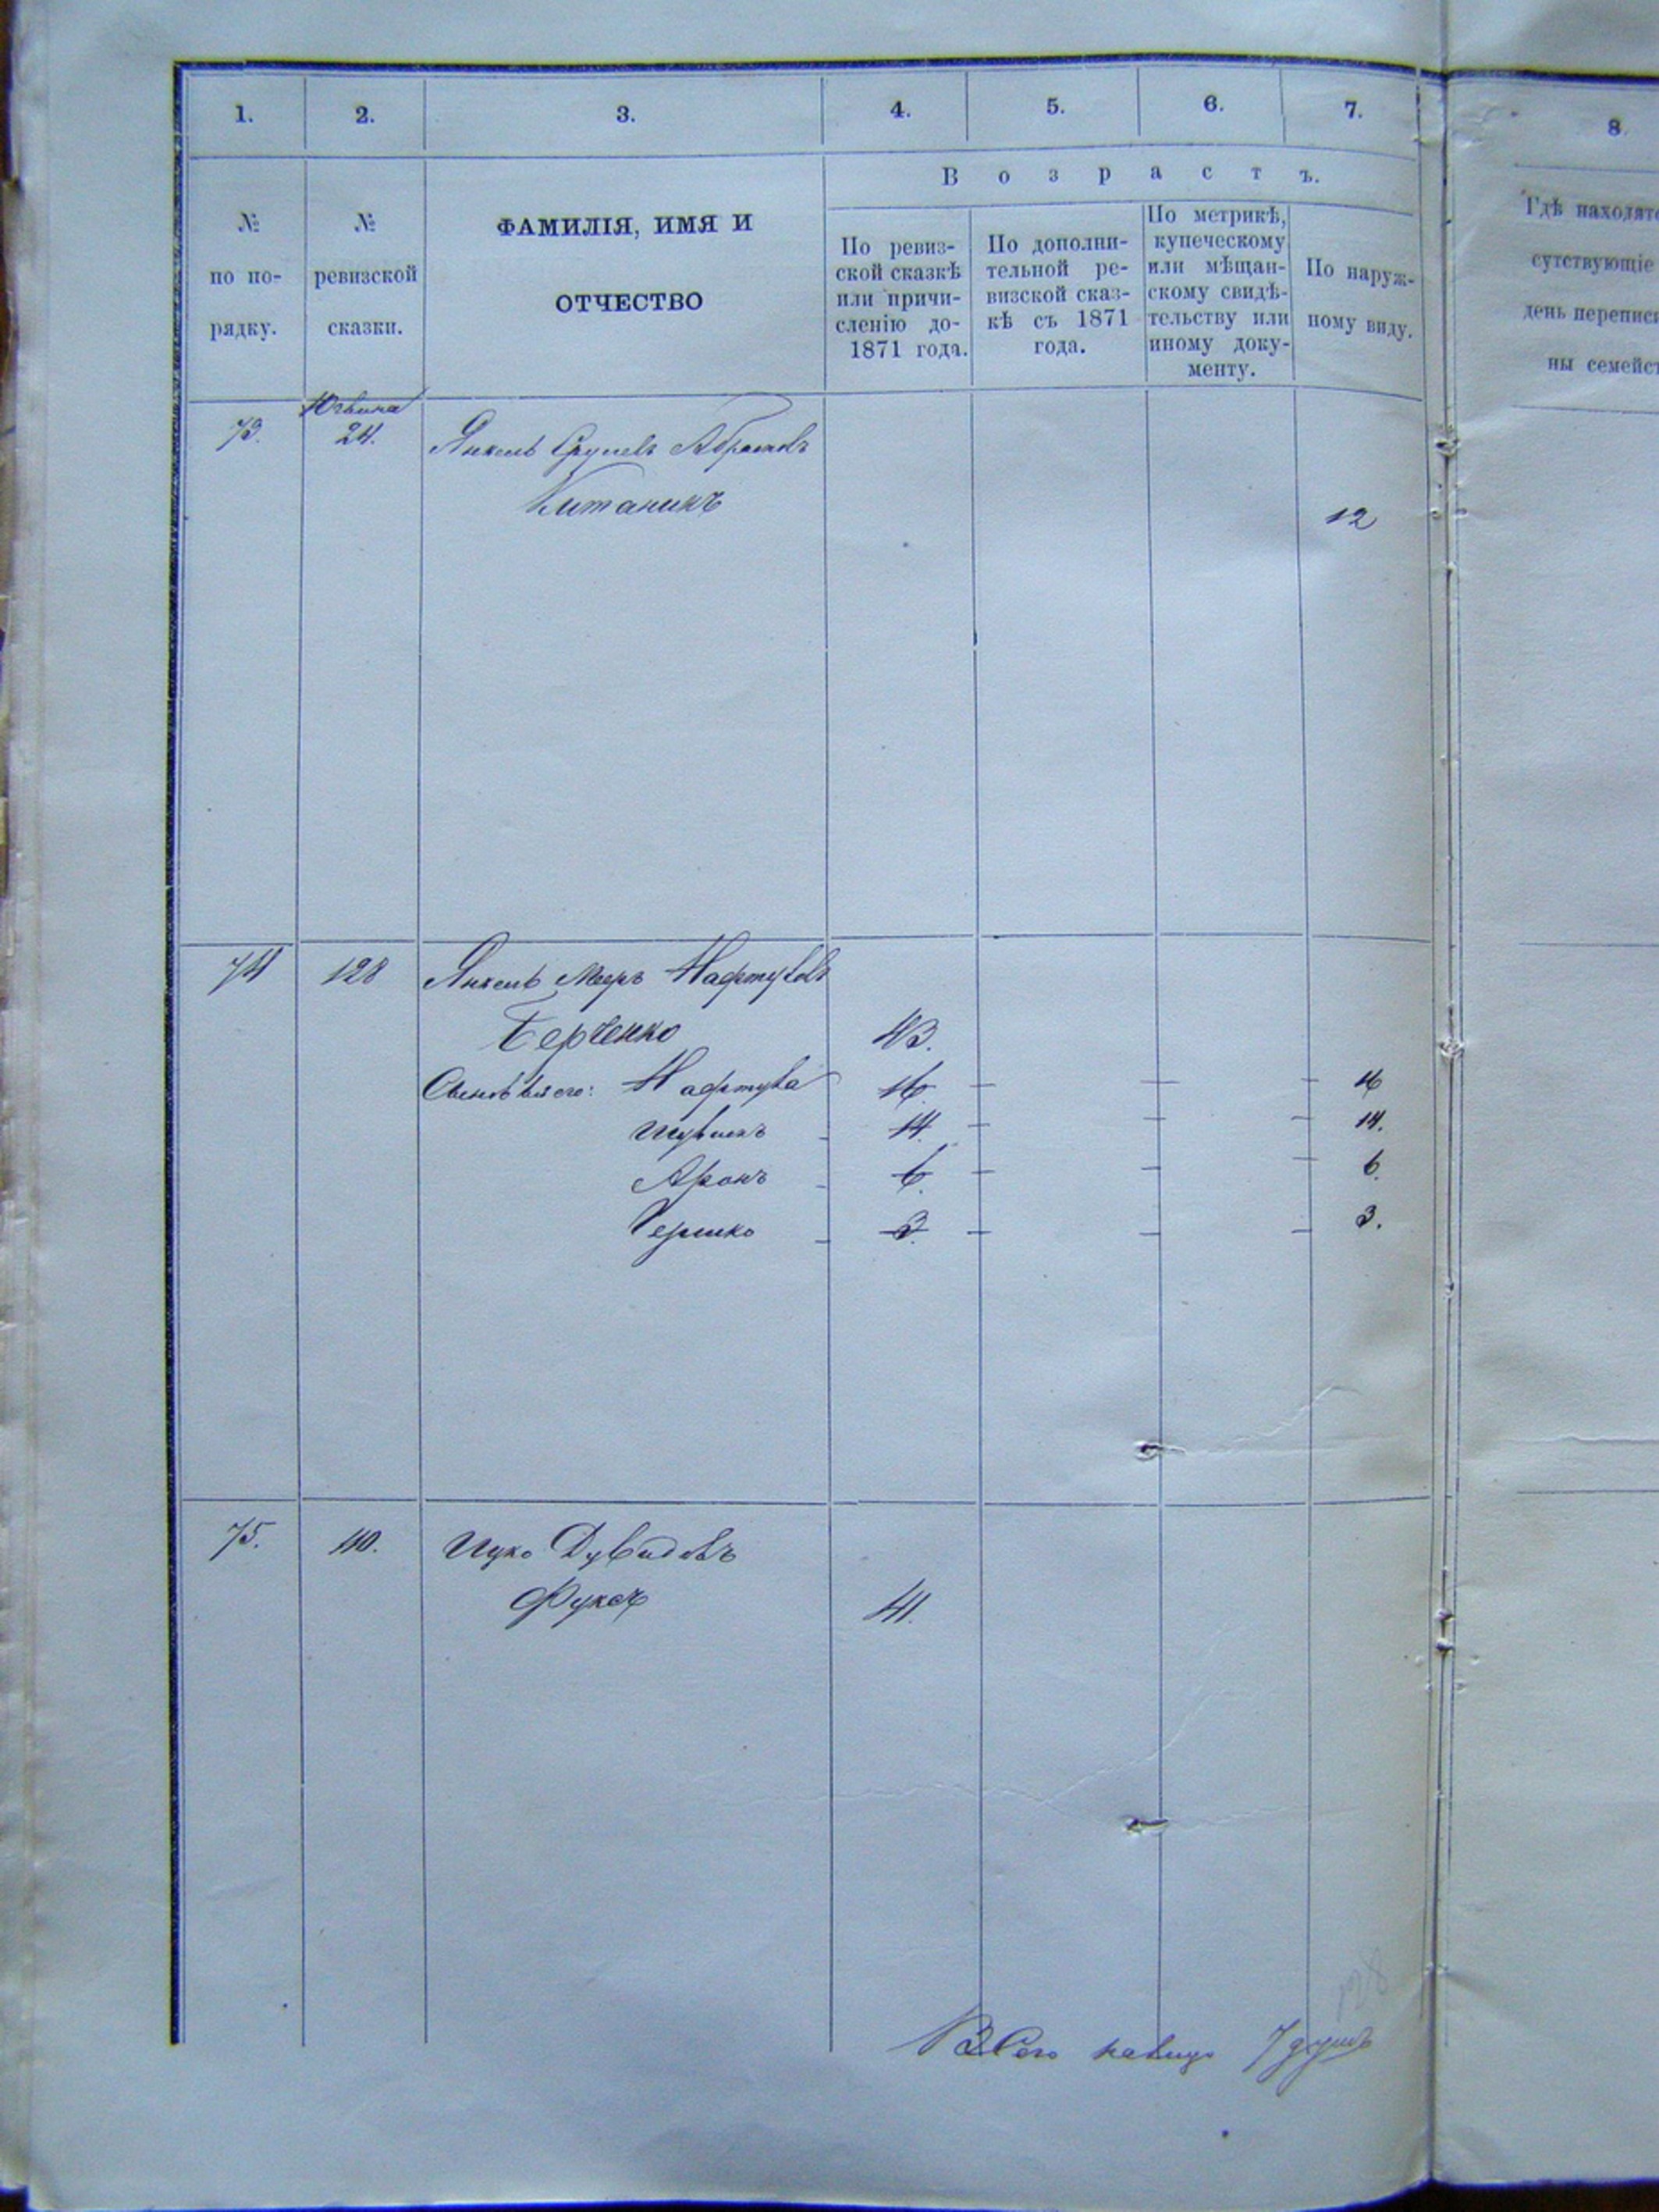 1. 2. 3. 4. 5. 6. 7.
8
№ по по-
рядку.
№
ревизской
сказки.
ФАМИЛІЯ, ИМЯ И
ОТЧЕСТВО
В о з р а с т ъ.
По ревиз-
ской сказкѣ
или причи-
сленію до
1871 года.
По дополни-
тельной ре-
визской сказ-
кѣ съ 1871
года.
По метрикѣ,
купеческому
или мѣщан-
скому свидѣ-
тельству или
иному доку-
менту.
По наруж-
ному виду.
Гдѣ находятс
сутствующіе
день переписи
ны семейст
73. 24. Янкель Сруловъ Абрамовъ
Китаникъ 12
74 128 Янкель Мееръ Нафтуловъ
Берченко 43.
Сыновья его: Нафтула 16 — — — 16
14 — — 14.
Аронъ — 6. — — — 6.
Гершко — 3. — — — 3.
75. 110. Ицко Дувидовъ
Фуксъ 41.
Всего налицо 7 душъ